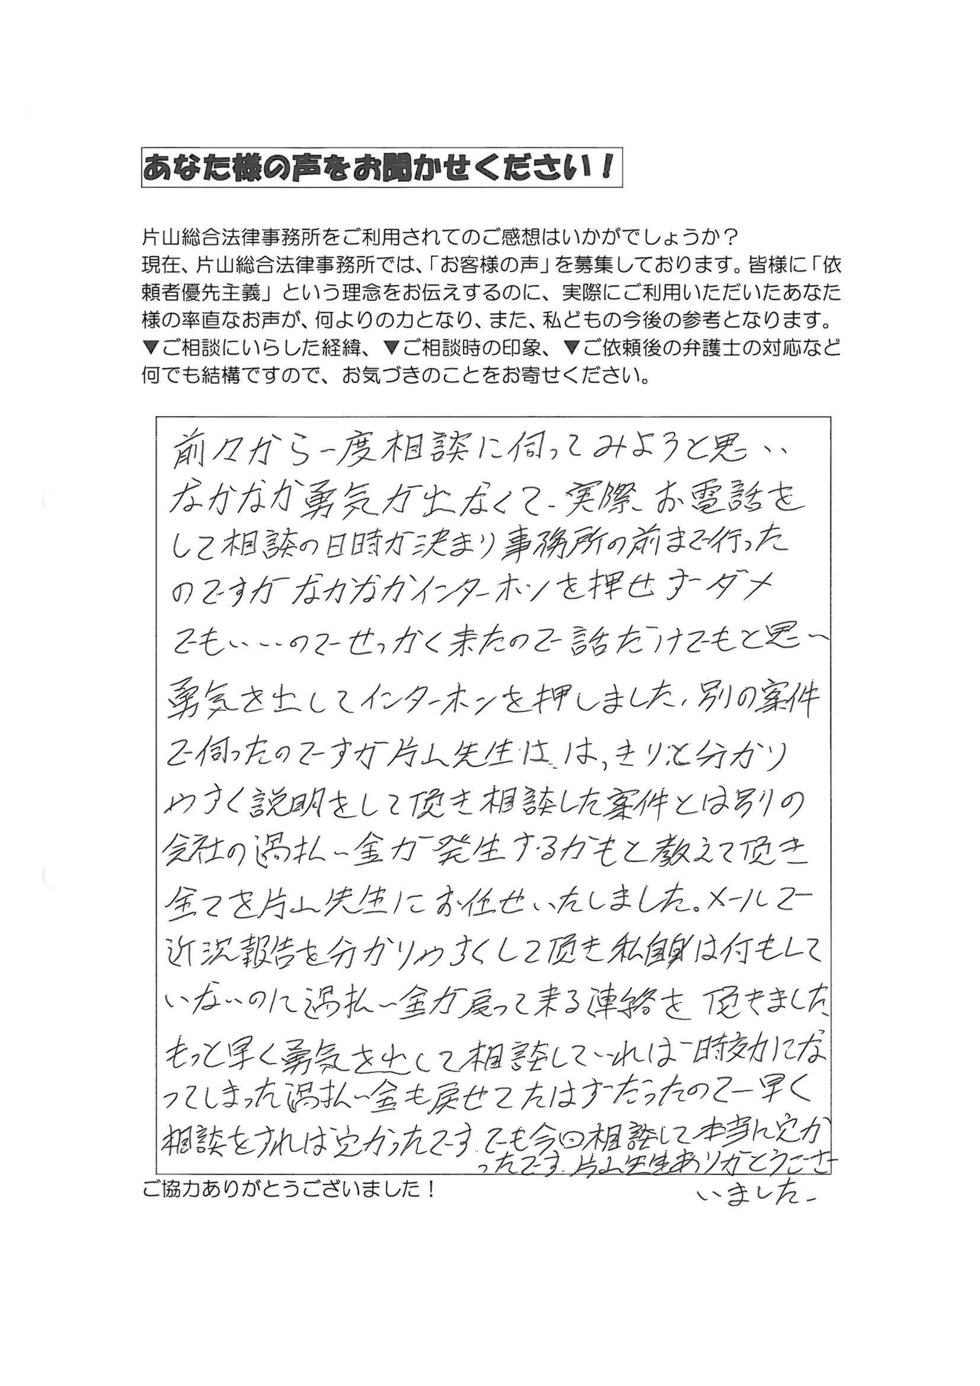 あなた様の声をお聞かせください！
片山総合法律事務所をご利用されてのご感想はいかがでしょうか？
現在、片山総合法律事務所では、「お客様の声」を募集しております。皆様に「依
頼者優先主義」という理念をお伝えするのに、実際にご利用いただいたあなた
様の率直なお声が、何よりの力となり、また、私どもの今後の参考となります。
▼ご相談にいらした経緯、▼ご相談時の印象、▼ご依頼後の弁護士の対応など
何でも結構ですので、お気づきのことをお寄せください。
前々から一度相談に伺ってみようと思い
なかなか勇気が出なくて、実際、お電話を
して相談の日時が決まり事務所の前まで行った
のですがなかなかインターホンを押せずダメ
でもいいのでせっかく来たので話だけでもと思い
勇気を出してインターホンを押しました。別の案件
で伺ったのですが片山先生は、はっきりと分かり
やすく説明をして頂き相談した案件とは別の
会社の過払い金が発生するかもと教えて頂き
全てを片山先生にお任せいたしました。メールで
近況報告を分かりやすくして頂き私自身は何もして
いないのに過払い金が戻って来る連絡を頂きました
もっと早く勇気を出して相談していれば時効にな
ってしまった過払い金も戻せてたはずだったので早く
相談をすれば良かったです。でも今回相談して本当に良か
ったです。片山先生ありがとうござ
いました。
ご協力ありがとうございました！